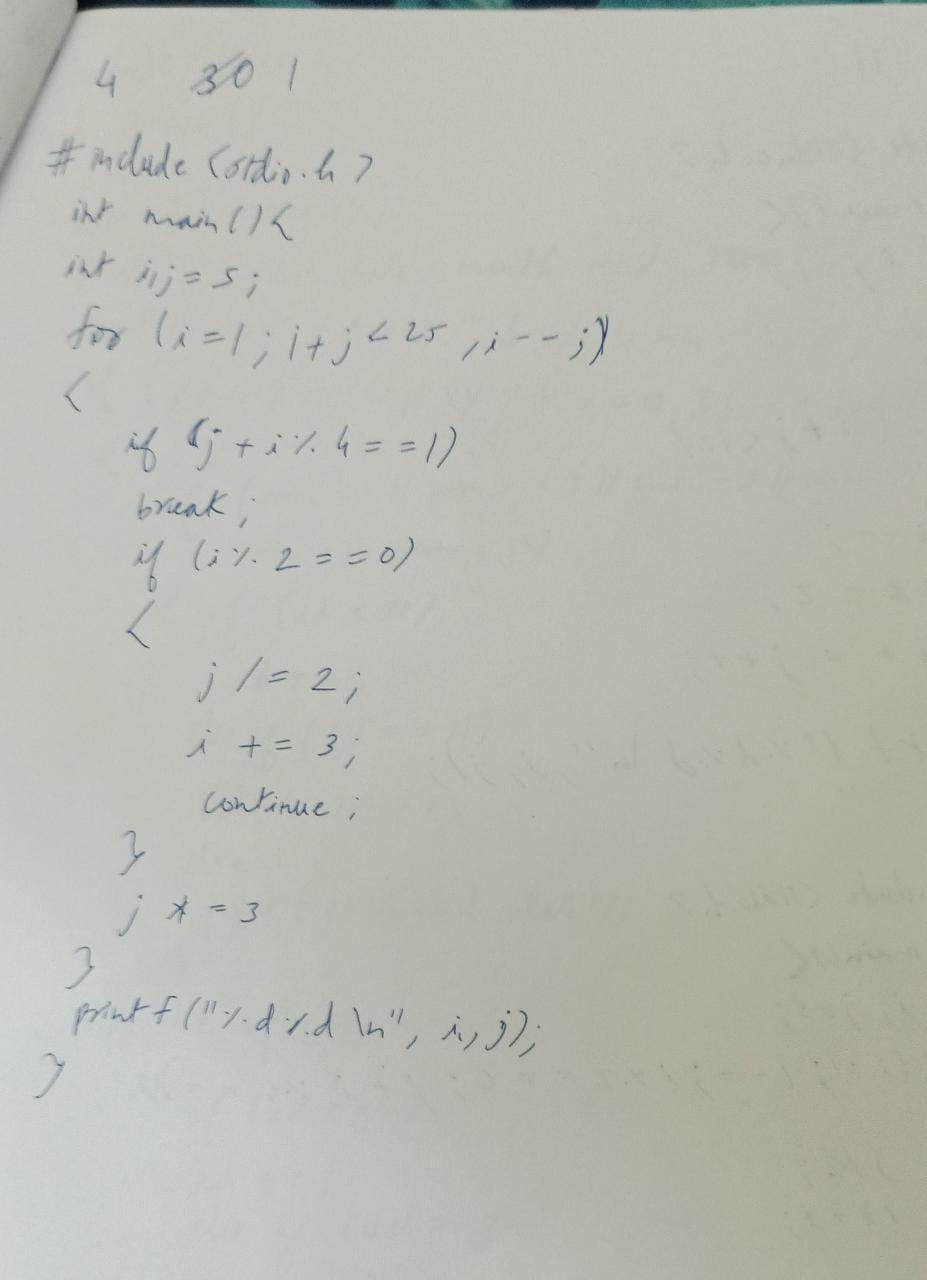 4 30 1
#include <stdio.h>
int main(){
int i,j=5;
for (i=1; i+j<25 ,i--;)
{
if (j+i%4==1)
break;
if (i%2==0)
{
j /= 2;
i += 3;
continue;
}
j *= 3
}
printf("%d%d\n", i,j);
}